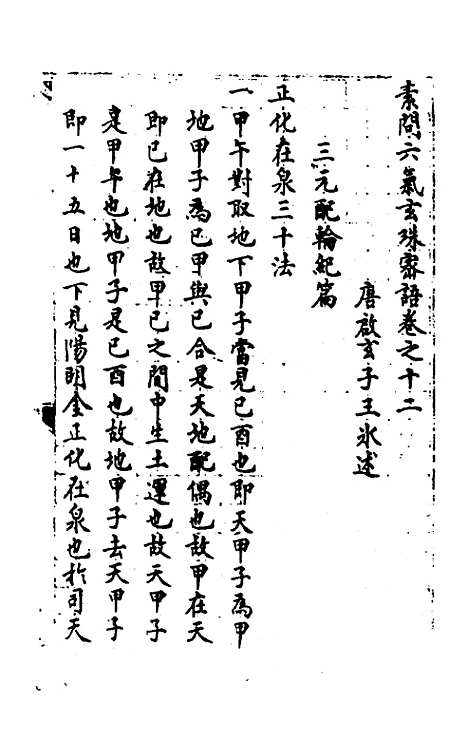 素問六氣玄珠密語卷之十二
唐啟玄子王氷述
三元配輪紀篇
正化在泉三十法
一甲午對取地下甲子當見己酉也即天甲子為甲
地甲子為己甲與己合是天地配偶也故甲在天
即己在地也故甲己之間中生土運也故天甲子
是甲午也地甲子是己酉也故地甲子去天甲子
即一十五日也下見陽明金正化在泉也於司天